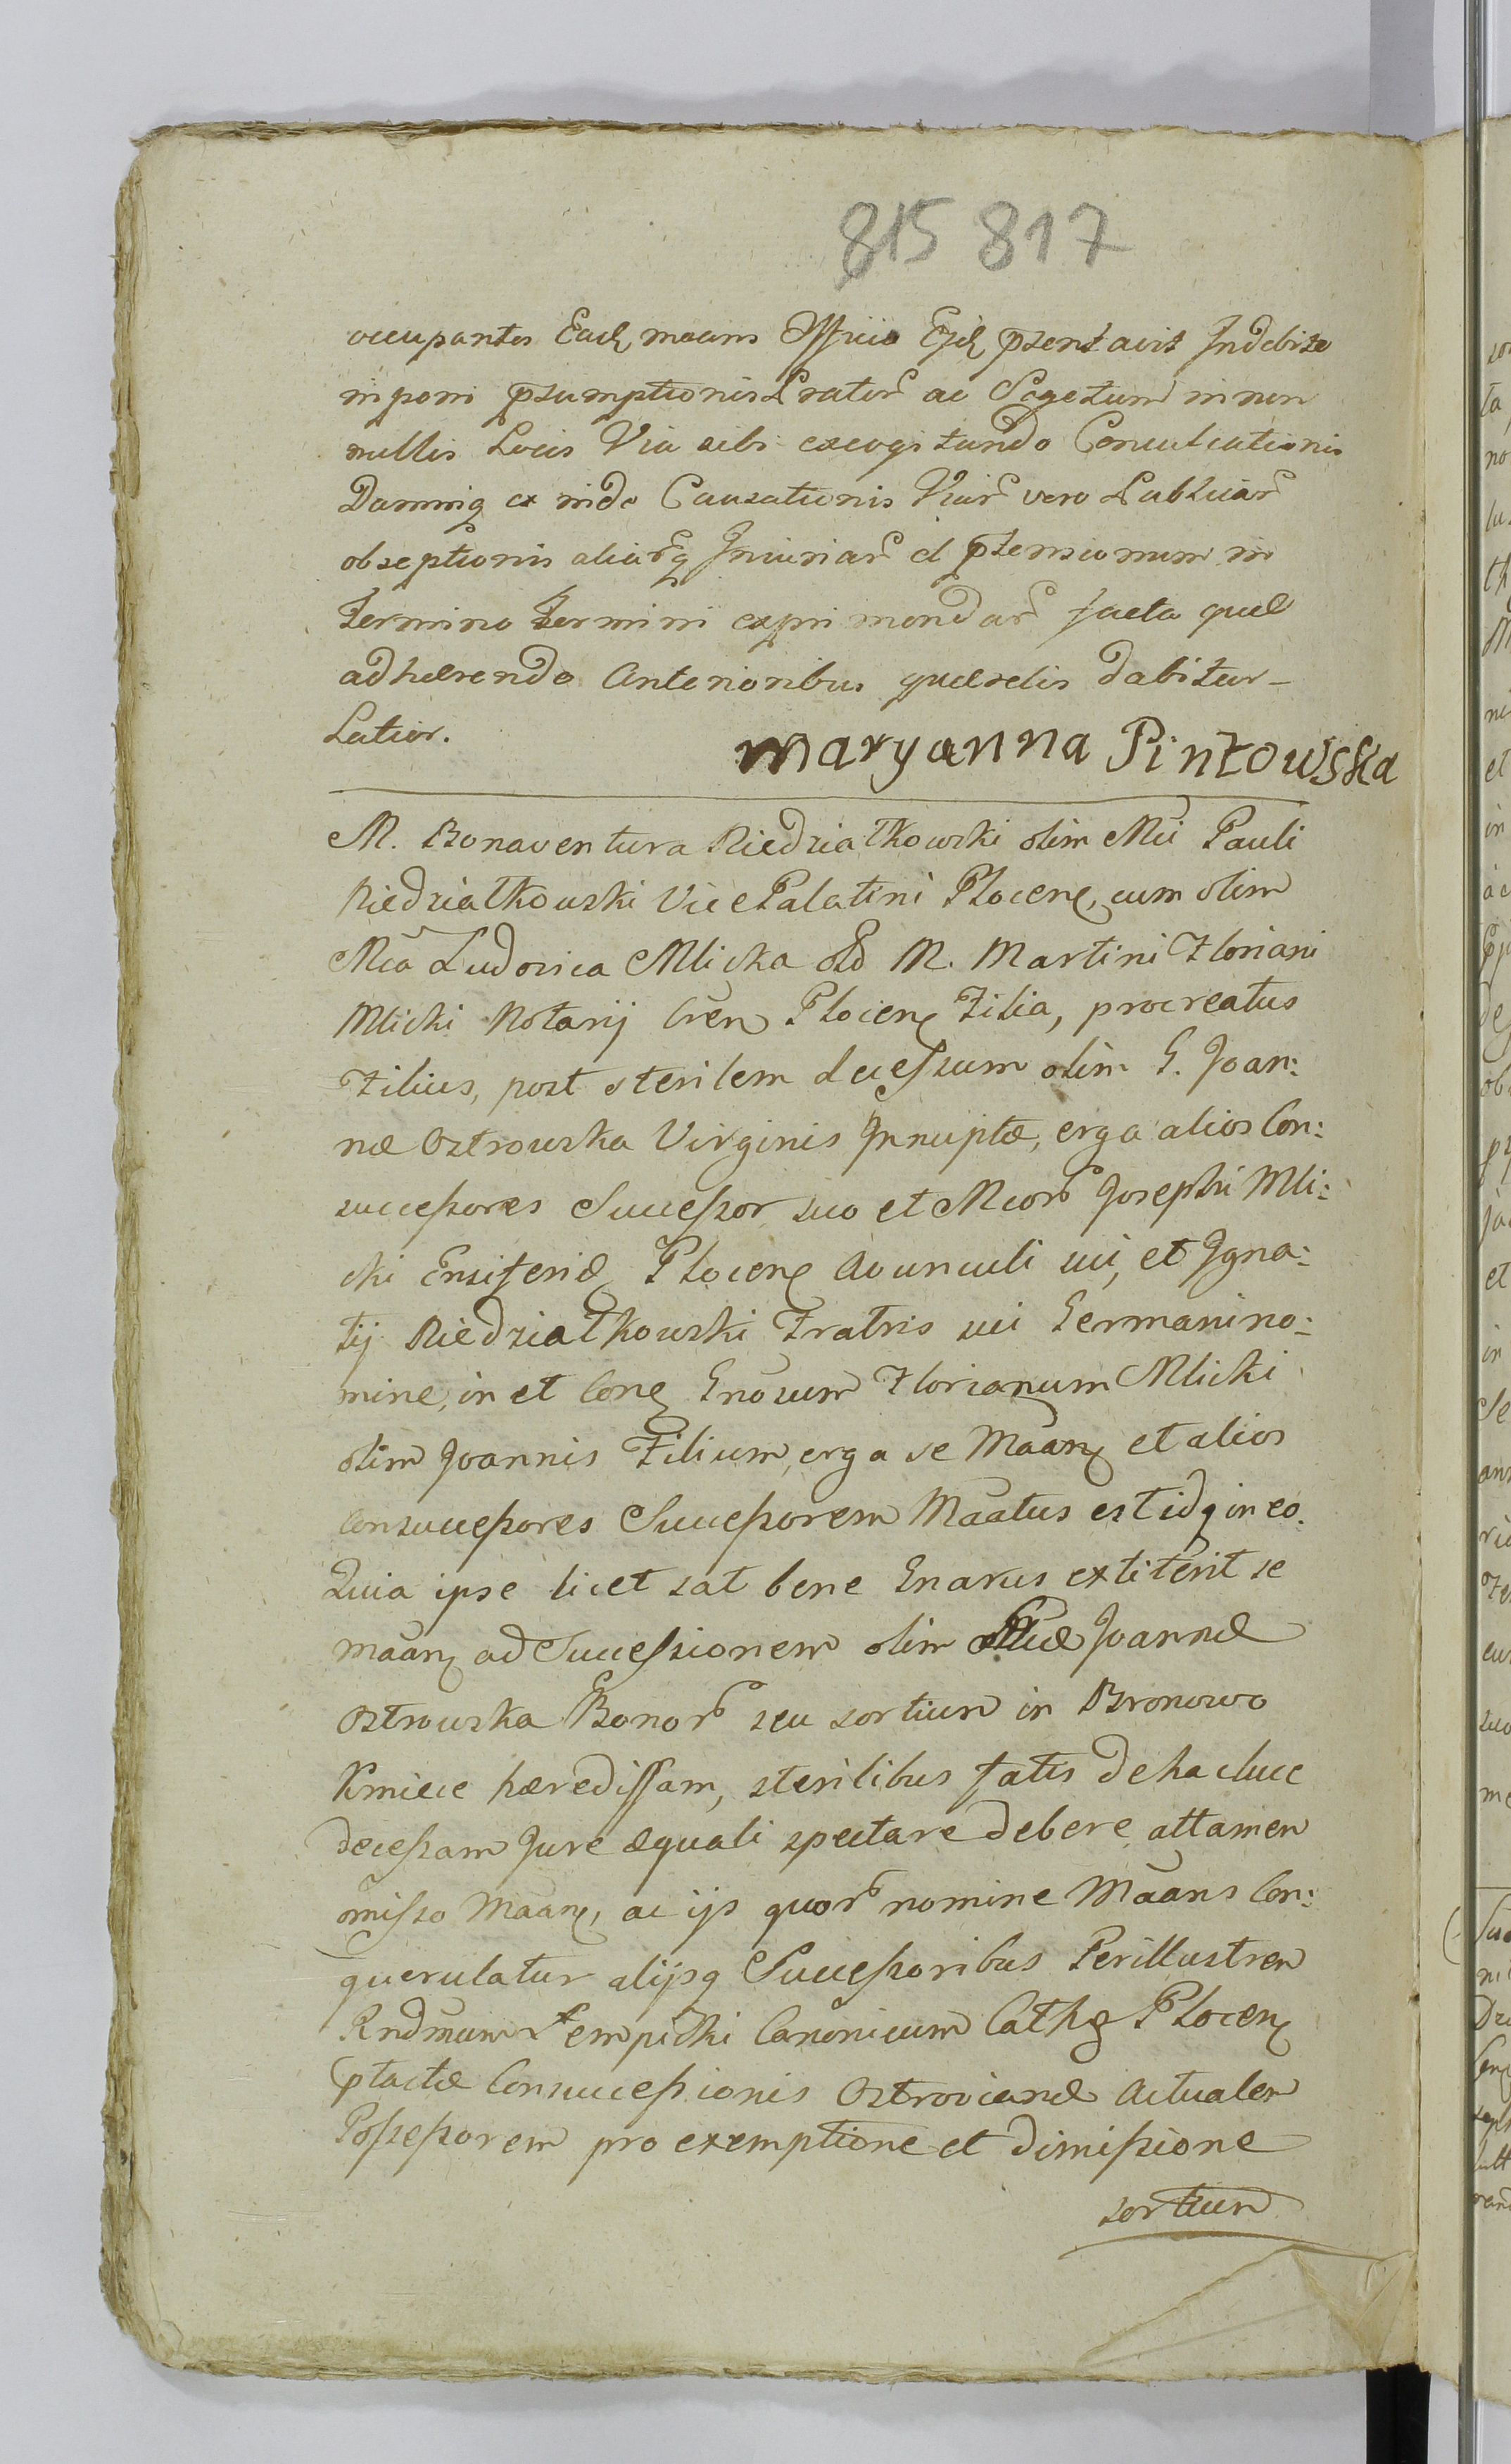 815 817
occupantes Ead maans Officio Ejd ptentavit Indebitæ
in poni ptsumptionis Prator ac Segetum in non
nullis Locis Via sibi excogitando Conculcationis
Damniq ex inde Causationis Viar vero
obseptionis aliarq Injuriar et ptensionum in
Termino Termini exprimendar facta quæ
adhærendo Anterioribus quærelis dabitur
Latior.
Maryanna Pintowska
M. Bonaventura Niedziałkowski olim Mci Pauli
Niedziałkowski Vice Palatini Plocens, cum olim
Mca Ludovica Mlicka olo M. Martini Floriani
Mlicki Notarij Cren Plocens Filia, procreatus
Filius, post sterilem decessum olim G. Joan:
næ Ostrowska Virginis Innuptæ, erga alios Con:
successores Successor suo et Mcor Josephi Mli:
cki Ensiferid Plocens Avunculi sui, et Igna:
tij Niedziałkowski Fratris sui Germani no:
mine, in et Cong Gnosum Florianum Mlicki
olim Joannis Filium, erga se Maan et alios
Consuccessores Successorem Maatus est idq in eo.
Quia ipse licet sat bene Gnarus extiterit se
Maan ad Successionem olim Joannæ
Ostrowska Bonor seu sortium in Bronowo
Kmiece hæredissam, sterilibus fatis de hac luce
decessam Jure æquali spectare debere attamen
omisso Maan, ac ijs quor nomine Maans Con:
querulatur alijsq Successoribus Perillustren
Rndmum Łempicki Canonicum Cathg Plocens
ptactæ Consuccessionis Ostrovianæ Actualem
Possessorem pro exemptione et dimissione
sortium